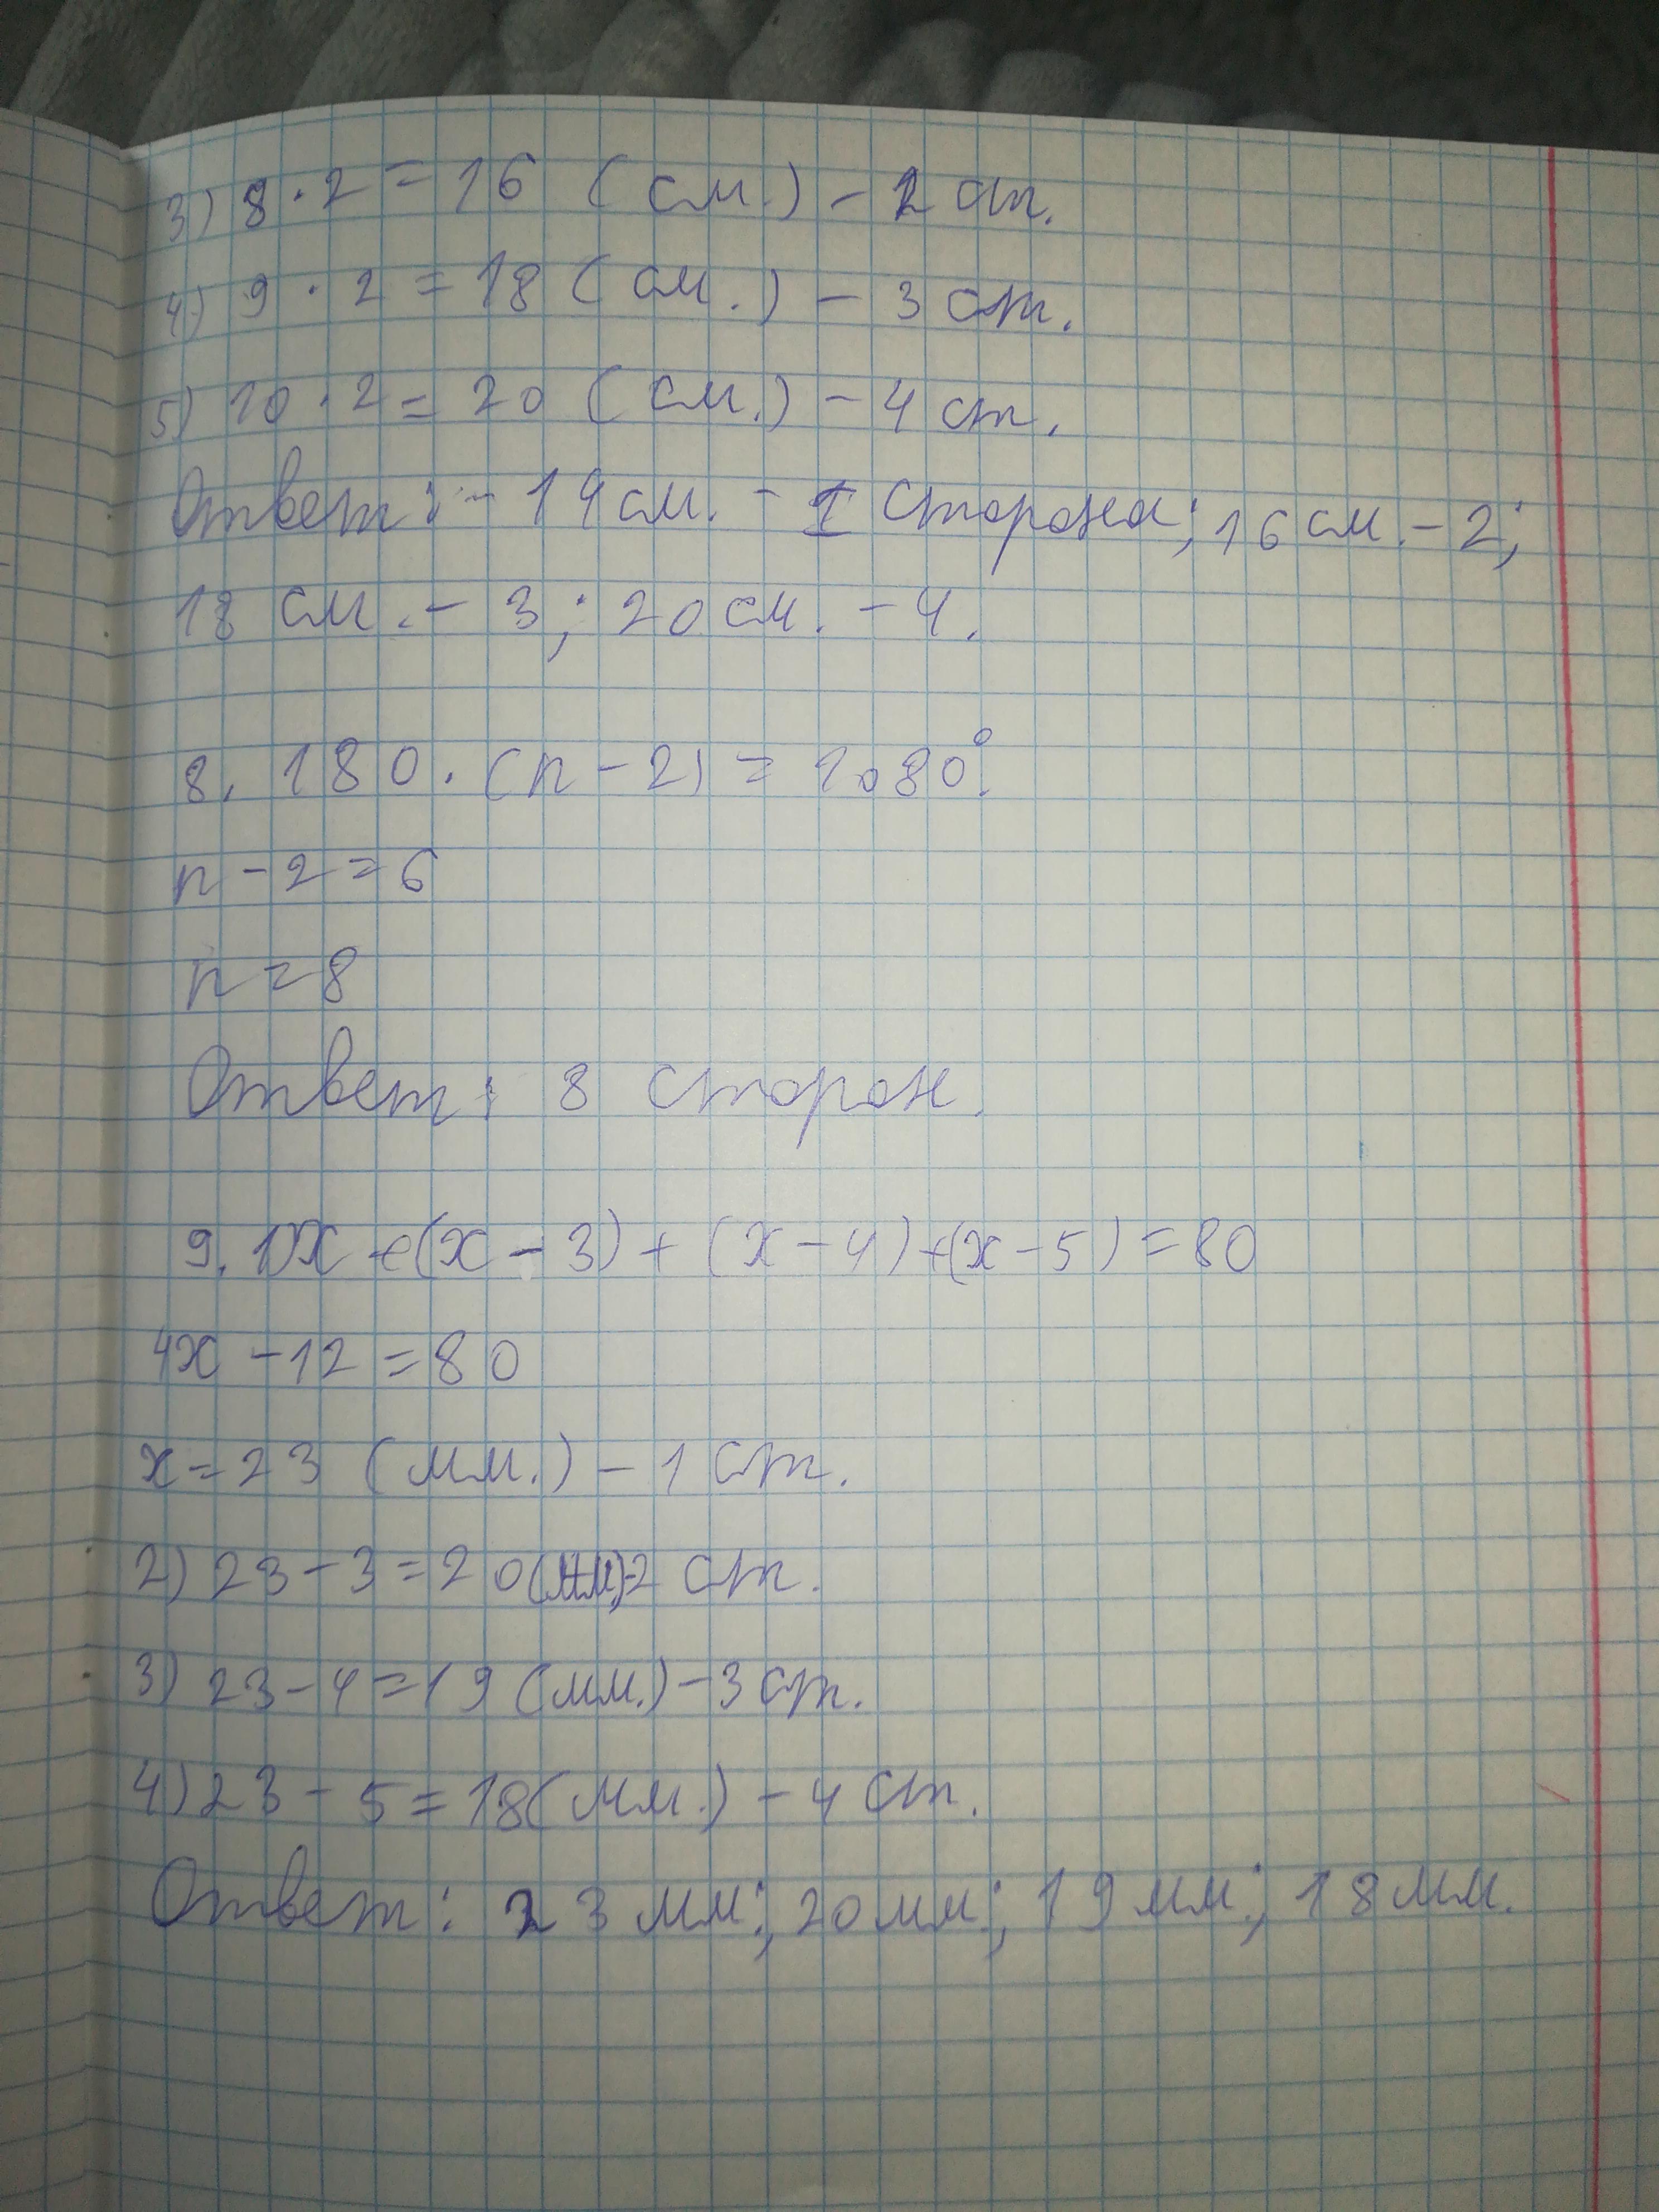 3) 8 · 2 = 16 (см.) - 2 ст.
4) 9 · 2 = 18 (см.) - 3 ст.
5) 10 · 2 = 20 (см.) - 4 ст.
Ответ: - 14 см. - 1 сторона; 16 см. - 2;
18 см. - 3; 20 см. - 4.
8. 180 · (n - 2) = 1080°.
n - 2 = 6
n = 8
Ответ: 8 сторон.
9. 1) x + (x - 3) + (x - 4) + (x - 5) = 80
4x - 12 = 80
x = 23 (мм.) - 1 ст.
2) 23 - 3 = 20 (мм.) - 2 ст.
3) 23 - 4 = 19 (мм.) - 3 ст.
4) 23 - 5 = 18 (мм.) - 4 ст.
Ответ: 23 мм.; 20 мм.; 19 мм.; 18 мм.